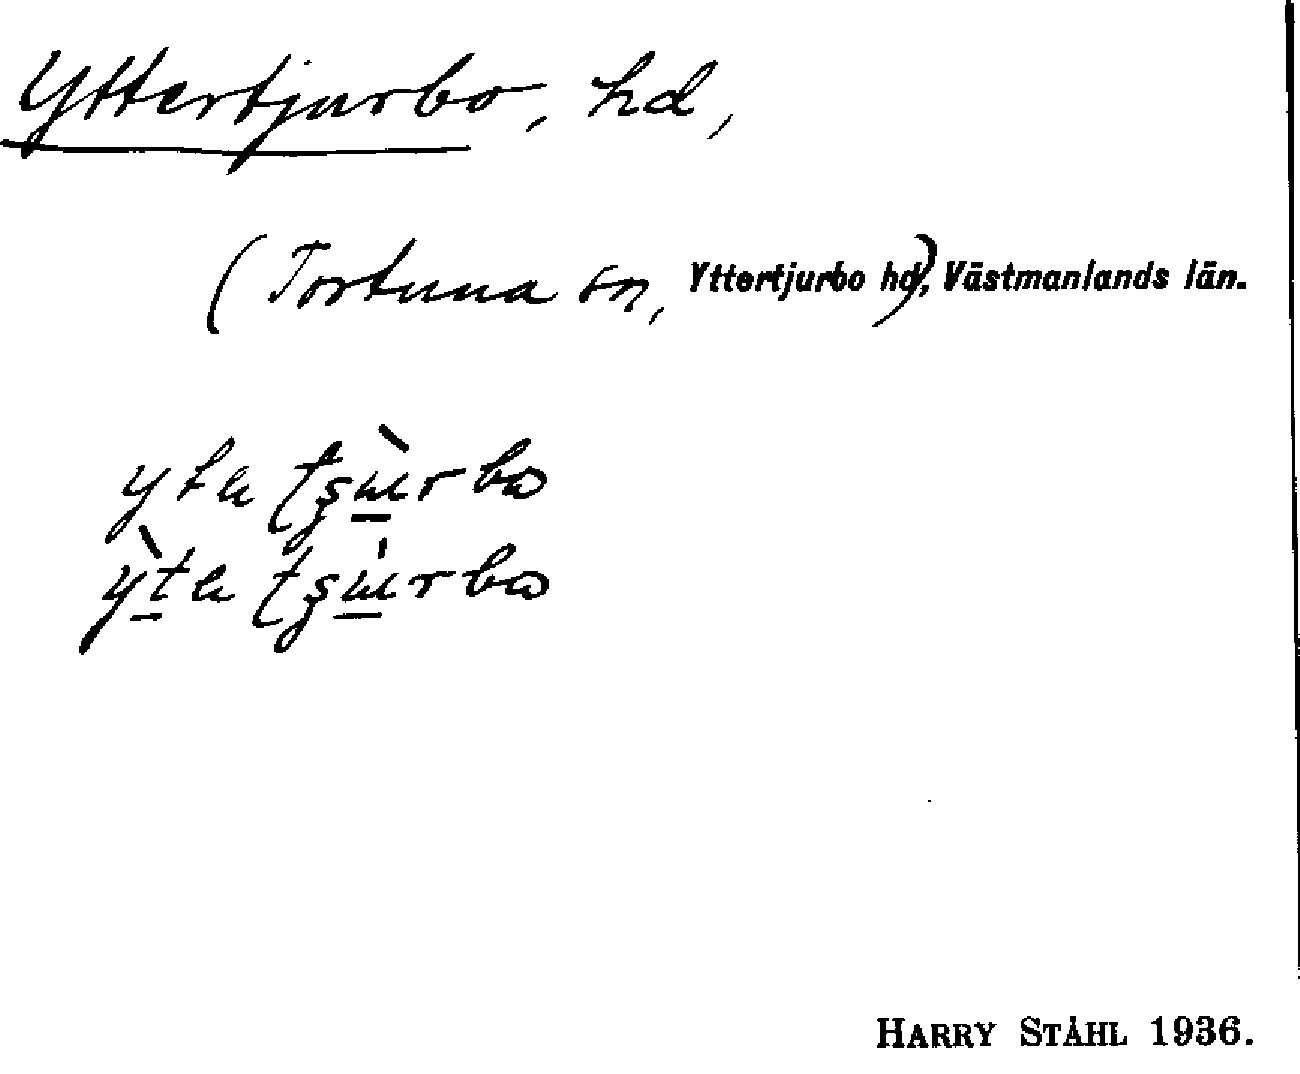 Yttertjurbo, hd,
(Tortuna sn, Yttertjurbo hd), Västmanlands län.
HARRY STÅHL 1936.